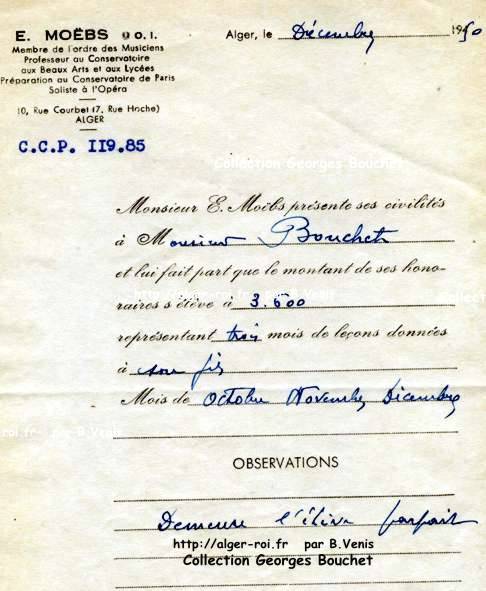 E. MOËBS O.I.
Alger, le Décembre 1950
Membre de l'ordre des Musiciens
Professeur au Conservatoire
aux Beaux Arts et aux Lycées
Préparation au Conservatoire de Paris
Soliste à l'Opéra
10, Rue Courbet (7, Rue Hoche)
ALGER
C.C.P. 119.85
Collection Georges Bouchet
Monsieur E. Moëbs présente ses civilités
à Monsieur Bouchet
et lui fait part que le montant de ses hono-
raires s'élève à 3.600
par B.Venis
représentant trois mois de leçons données
à son fils
Mois de Octobre Novembre Décembre
-roi.fr par B.Venis
OBSERVATIONS
Demeure l'élève parfait
http://alger-roi.fr par B.Venis
Collection Georges Bouchet